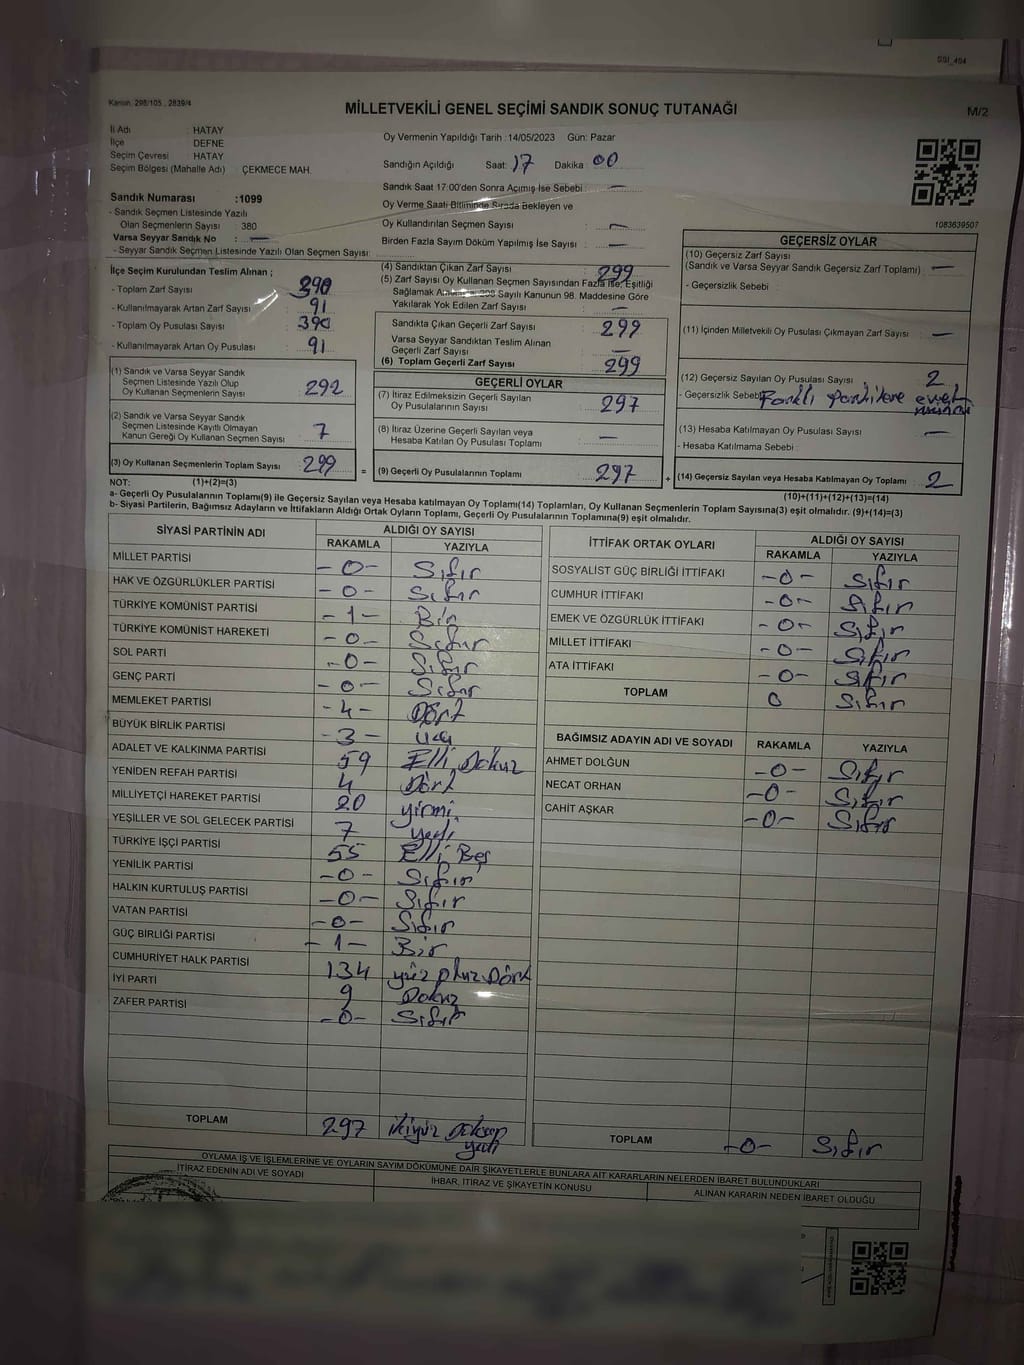 SSİ_404
Kanun. 298/105 , 2839/4
MİLLETVEKİLİ GENEL SEÇİMİ SANDIK SONUÇ TUTANAĞI
M/2
İl Adı : HATAY
İlçe : DEFNE
Seçim Çevresi : HATAY
Seçim Bölgesi (Mahalle Adı) ÇEKMECE MAH.
Oy Vermenin Yapıldığı Tarih : 14/05/2023 Gün: Pazar
Sandığın Açıldığı Saat: 17 Dakika 00
Sandık Saat 17:00'den Sonra Açımış İse Sebebi : —
Oy Verme Saati Bitiminde Sırada Bekleyen ve
Oy Kullandırılan Seçmen Sayısı : —
Birden Fazla Sayım Döküm Yapılmış İse Sayısı : —
1083639507
Sandık Numarası :1099
- Sandık Seçmen Listesinde Yazılı
Olan Seçmenlerin Sayısı : 380
Varsa Seyyar Sandık No : —
- Seyyar Sandık Seçmen Listesinde Yazılı Olan Seçmen Sayısı:
İlçe Seçim Kurulundan Teslim Alınan ;
- Toplam Zarf Sayısı : 390
- Kullanılmayarak Artan Zarf Sayısı : 91
- Toplam Oy Pusulası Sayısı : 390
- Kullanılmayarak Artan Oy Pusulası : 91
(1) Sandık ve Varsa Seyyar Sandık
Seçmen Listesinde Yazılı Olup
Oy Kullanan Seçmenlerin Sayısı : 292
(2) Sandık ve Varsa Seyyar Sandık
Seçmen Listesinde Kayıtlı Olmayan
Kanun Gereği Oy Kullanan Seçmen Sayısı : 7
(3) Oy Kullanan Seçmenlerin Toplam Sayısı : 299
(4) Sandıktan Çıkan Zarf Sayısı : 299
(5) Zarf Sayısı Oy Kullanan Seçmen Sayısından Fazla İse, Eşitliği
Sağlamak 298 Sayılı Kanunun 98. Maddesine Göre
Yakılarak Yok Edilen Zarf Sayısı : —
Sandıkta Çıkan Geçerli Zarf Sayısı : 299
Varsa Seyyar Sandıktan Teslim Alınan
Geçerli Zarf Sayısı : —
(6) Toplam Geçerli Zarf Sayısı : 299
GEÇERLİ OYLAR
(7) İtiraz Edilmeksizin Geçerli Sayılan
Oy Pusulalarının Sayısı : 297
(8) İtiraz Üzerine Geçerli Sayılan veya
Hesaba Katılan Oy Pusulası Toplamı : —
= (9) Geçerli Oy Pusulalarının Toplamı : 297
GEÇERSİZ OYLAR
(10) Geçersiz Zarf Sayısı
(Sandık ve Varsa Seyyar Sandık Geçersiz Zarf Toplamı) : —
- Geçersizlik Sebebi :
(11) İçinden Milletvekili Oy Pusulası Çıkmayan Zarf Sayısı : —
(12) Geçersiz Sayılan Oy Pusulası Sayısı : 2
- Geçersizlik Sebebi : Farklı partilere evet
(13) Hesaba Katılmayan Oy Pusulası Sayısı : —
- Hesaba Katılmama Sebebi :
+ (14) Geçersiz Sayılan veya Hesaba Katılmayan Oy Toplamı : 2
NOT: (1)+(2)=(3)
(10)+(11)+(12)+(13)=(14)
a- Geçerli Oy Pusulalarının Toplamı(9) ile Geçersiz Sayılan veya Hesaba katılmayan Oy Toplam(14) Toplamları, Oy Kullanan Seçmenlerin Toplam Sayısına(3) eşit olmalıdır. (9)+(14)=(3)
b- Siyasi Partilerin, Bağımsız Adayların ve İttifakların Aldığı Ortak Oyların Toplamı, Geçerli Oy Pusulalarının Toplamına(9) eşit olmalıdır.
SİYASİ PARTİNİN ADI ALDIĞI OY SAYISI
RAKAMLA YAZIYLA
MİLLET PARTİSİ -0- Sıfır
HAK VE ÖZGÜRLÜKLER PARTİSİ -0- Sıfır
TÜRKİYE KOMÜNİST PARTİSİ -1- Bir
TÜRKİYE KOMÜNİST HAREKETİ -0- Sıfır
SOL PARTİ -0- Sıfır
GENÇ PARTİ -0- Sıfır
MEMLEKET PARTİSİ -4- Dört
BÜYÜK BİRLİK PARTİSİ -3- üç
ADALET VE KALKINMA PARTİSİ 59 Elli Dokuz
YENİDEN REFAH PARTİSİ 4 Dört
MİLLİYETÇİ HAREKET PARTİSİ 20 yirmi
YEŞİLLER VE SOL GELECEK PARTİSİ 7 yedi
TÜRKİYE İŞÇİ PARTİSİ 55 Elli Beş
YENİLİK PARTİSİ -0- Sıfır
HALKIN KURTULUŞ PARTİSİ -0- Sıfır
VATAN PARTİSİ -0- Sıfır
GÜÇ BİRLİĞİ PARTİSİ -1- Bir
CUMHURİYET HALK PARTİSİ 134 yüz Dört
İYİ PARTİ 9 Dokuz
ZAFER PARTİSİ -0- Sıfır
TOPLAM 297 ikiyüz Doksan yedi
İTTİFAK ORTAK OYLARI ALDIĞI OY SAYISI
RAKAMLA YAZIYLA
SOSYALİST GÜÇ BİRLİĞİ İTTİFAKI -0- Sıfır
CUMHUR İTTİFAKI -0- Sıfır
EMEK VE ÖZGÜRLÜK İTTİFAKI -0- Sıfır
MİLLET İTTİFAKI -0- Sıfır
ATA İTTİFAKI -0- Sıfır
TOPLAM 0 Sıfır
BAĞIMSIZ ADAYIN ADI VE SOYADI RAKAMLA YAZIYLA
AHMET DOLĞUN -0- Sıfır
NECAT ORHAN -0- Sıfır
CAHİT AŞKAR -0- Sıfır
TOPLAM -0- Sıfır
OYLAMA İŞ VE İŞLEMLERİNE VE OYLARIN SAYIM DÖKÜMÜNE DAİR ŞİKAYETLERLE BUNLARA AİT KARARLARIN NELERDEN İBARET BULUNDUKLARI
İTİRAZ EDENİN ADI VE SOYADI İHBAR, İTİRAZ VE ŞİKAYETİN KONUSU ALINAN KARARIN NEDEN İBARET OLDUĞU